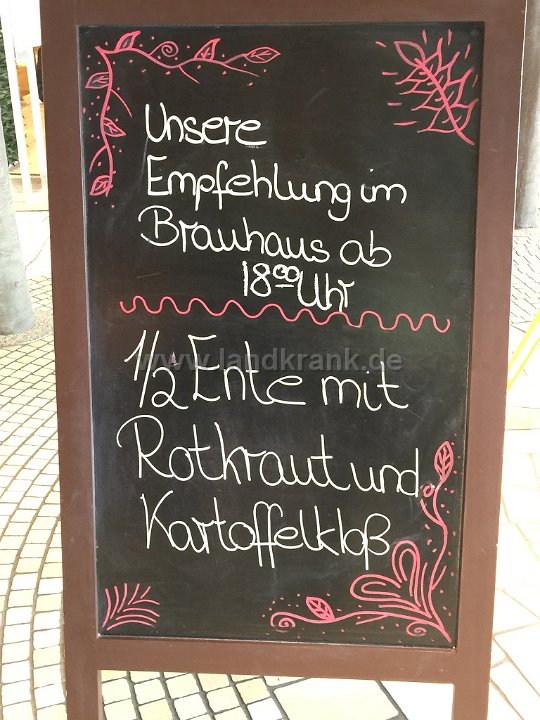 Unsere
Empfehlung im
Brauhaus ab
18⁰⁰ Uhr
www.landkrank.de
1/2 Ente mit
Rotkraut und
Kartoffelkloß